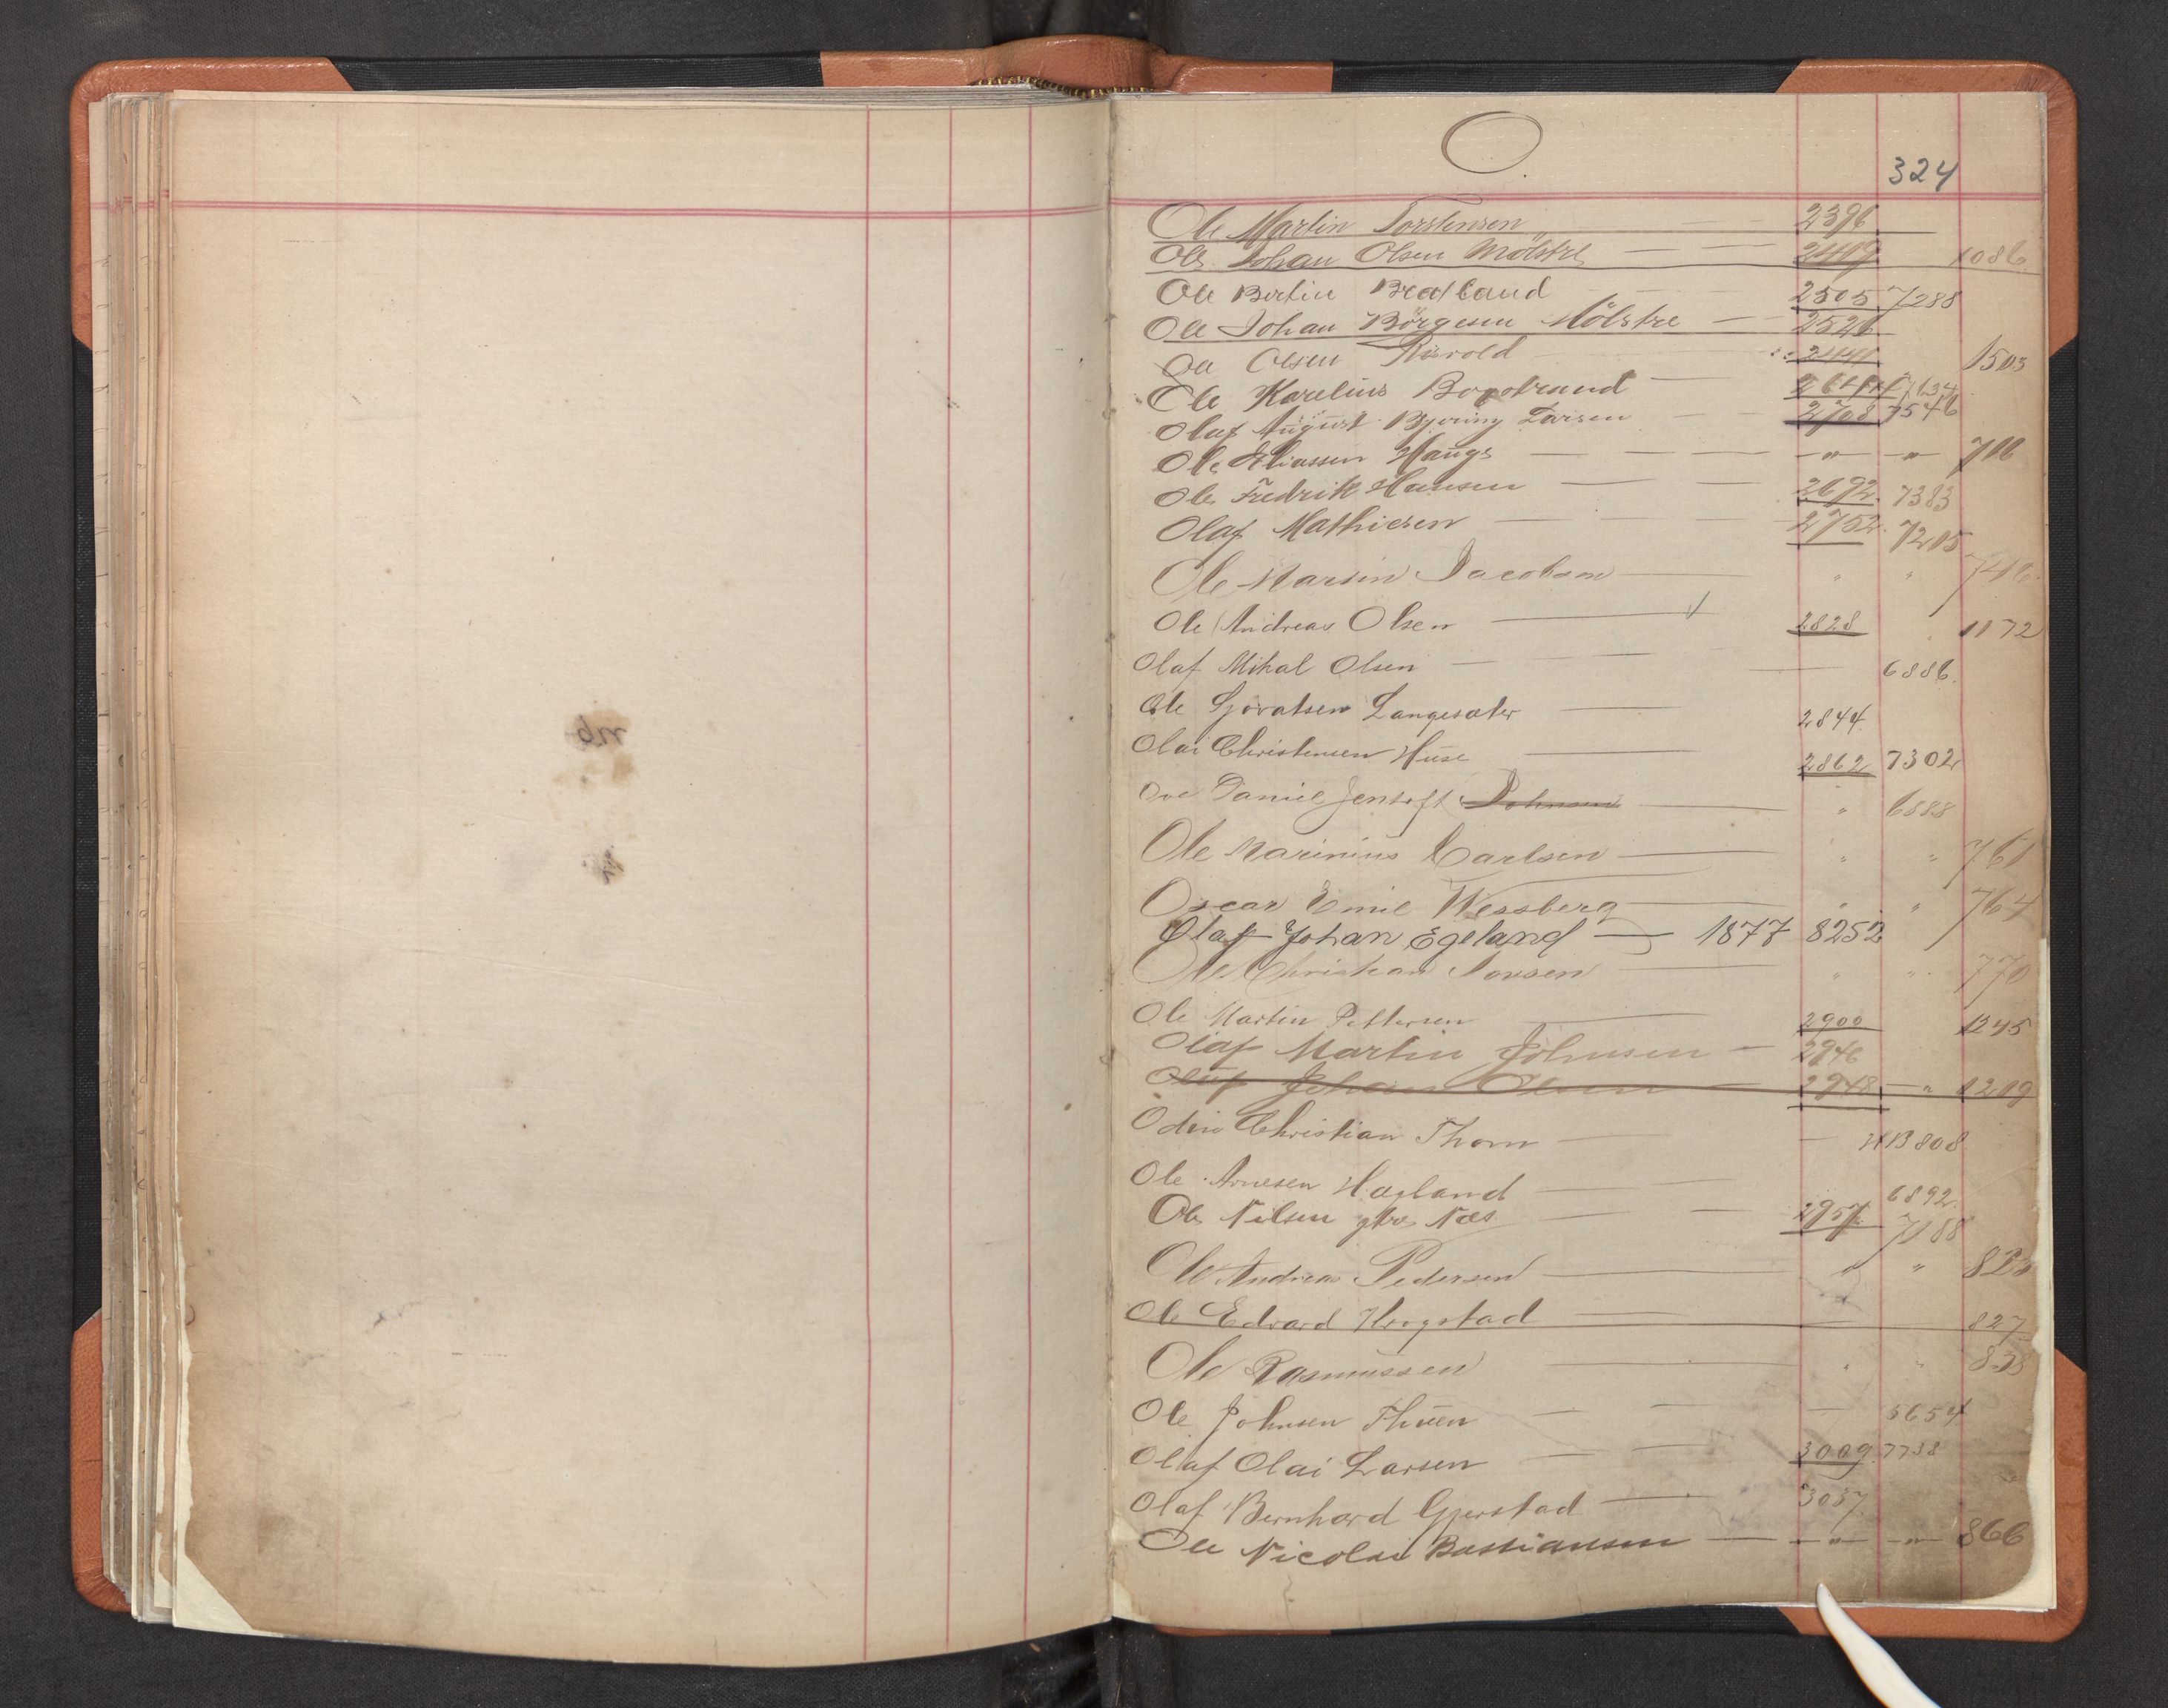 O.
324
Ole Martin Torstensen 2396
Ole Johan Olsen Mölstre 2409 1086
Ole Bertin Bratland 2505 7288
Ole Johan Börgesen Mölstre 2526
Ole Olsen 1503
Ole Karelius
Olaf August Bjering Larsen 2708 7546
Ole Eliassen Haugs — " — — " — 706
Ole Fredrik Hansen 2692. 7383
Olaf Mathiesen 2752. 7205
Ole Martin Jacobsen " "
Ole Andreas Olsen 2828 1172
Olaf Mikal Olsen 6886.
Ole Langesæter 2844.
Olai Christensen Huse 2862 7302
Ove Daniel Jentoft Johnsen " 6888
Ole Marinius Carlsen " " 761
Oscar Emil Wessberg " " 764
Olaf Johan Egeland — 1877 8252
Ole Christian " " 770
Ole Martin Pettersen 2900 1245
Olaf Martin Johnsen — 2946
Johan Olsen 2948 — " 1219
Odin Christian Thorn 13808
Ole Arnesen Hagland 6892
Ole Nilsen Næs 2957. 7188
Ole Andreas Pedersen " "
Ole Edvard 827
Ole Rasmussen " " 838
Ole Johnsen Thuen
Olaf Olai Larsen 3009 7738
Olaf Bernhard Gjerstad 3037
Ole Nicolai Bastiansen — " — — " — 866